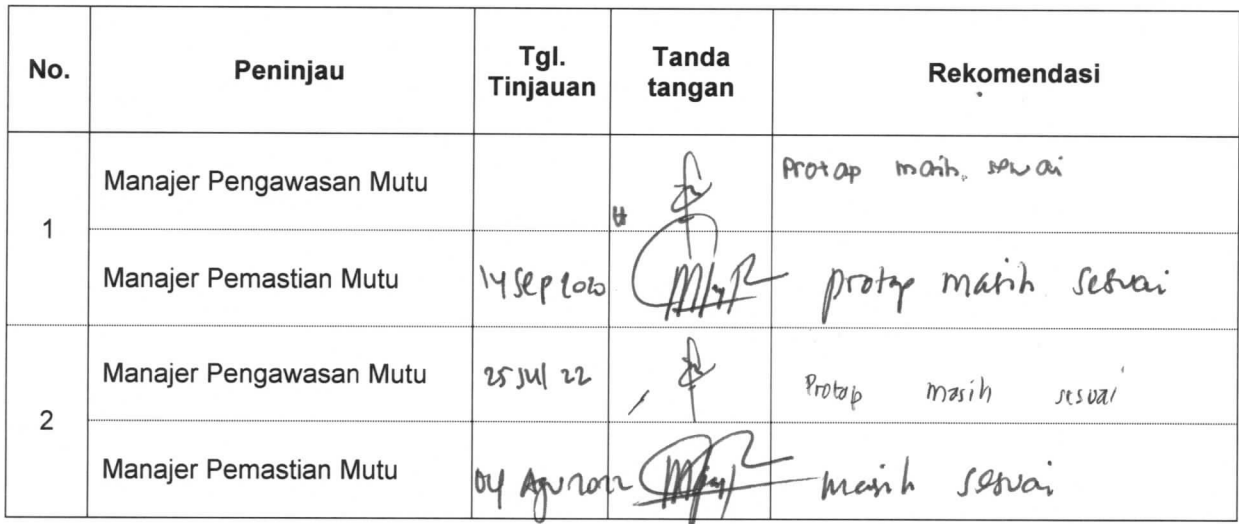 No. Peninjau Tgl. Tinjauan Tanda tangan Rekomendasi
1
Manajer Pengawasan Mutu Protap masih sesuai
Manajer Pemastian Mutu 14 Sep 2020 protap masih sesuai
2
Manajer Pengawasan Mutu 25 Jul 22 Protap masih sesuai
Manajer Pemastian Mutu 04 Agu 2022 masih sesuai